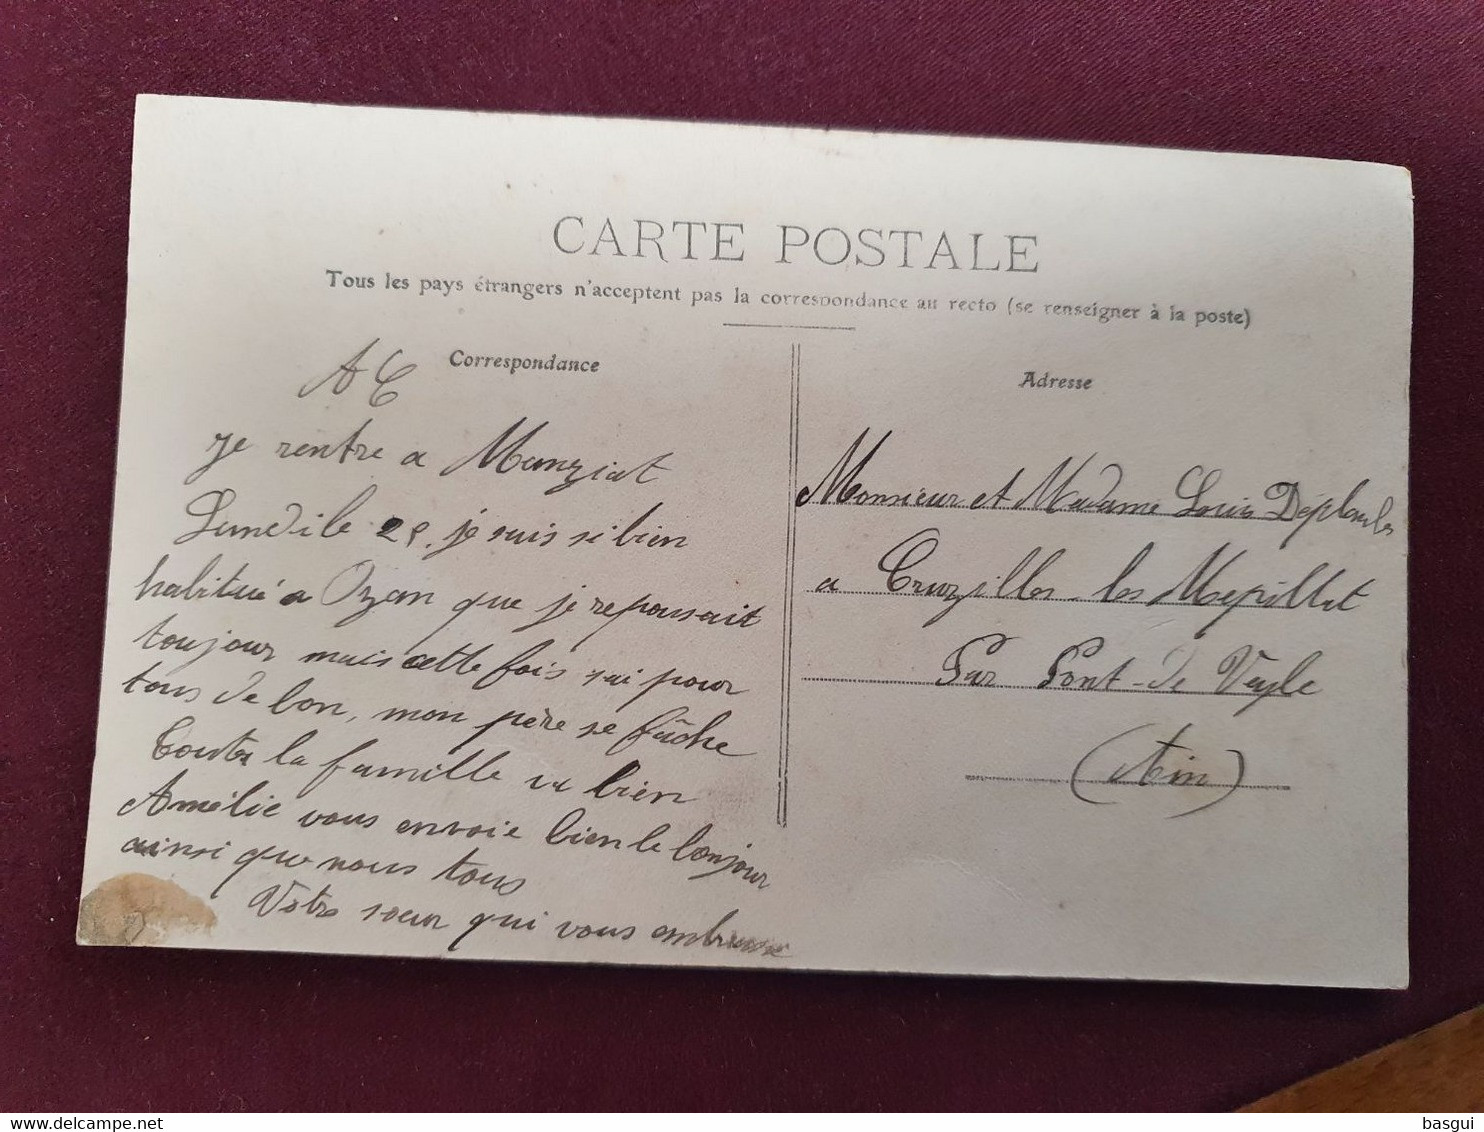 CARTE POSTALE
Tous les pays étrangers n'acceptent pas la correspondance au recto (se renseigner à la poste)
Correspondance
je rentre a Manziat
Lundi le 25. je suis si bien
habitué a Ozan que je repousait
toujour mais cette fois sai pour
tous de bon, mon père se fâche
Toute la famille va bien
Amélie vous envoie bien le bonjour
ainsi que nous tous
Votre soeur qui vous embrasse
Adresse
Monsieur et Madame Louis
a Cruzilles-les Mepillat
Par Pont-de Veyle
(Ain)
basgui